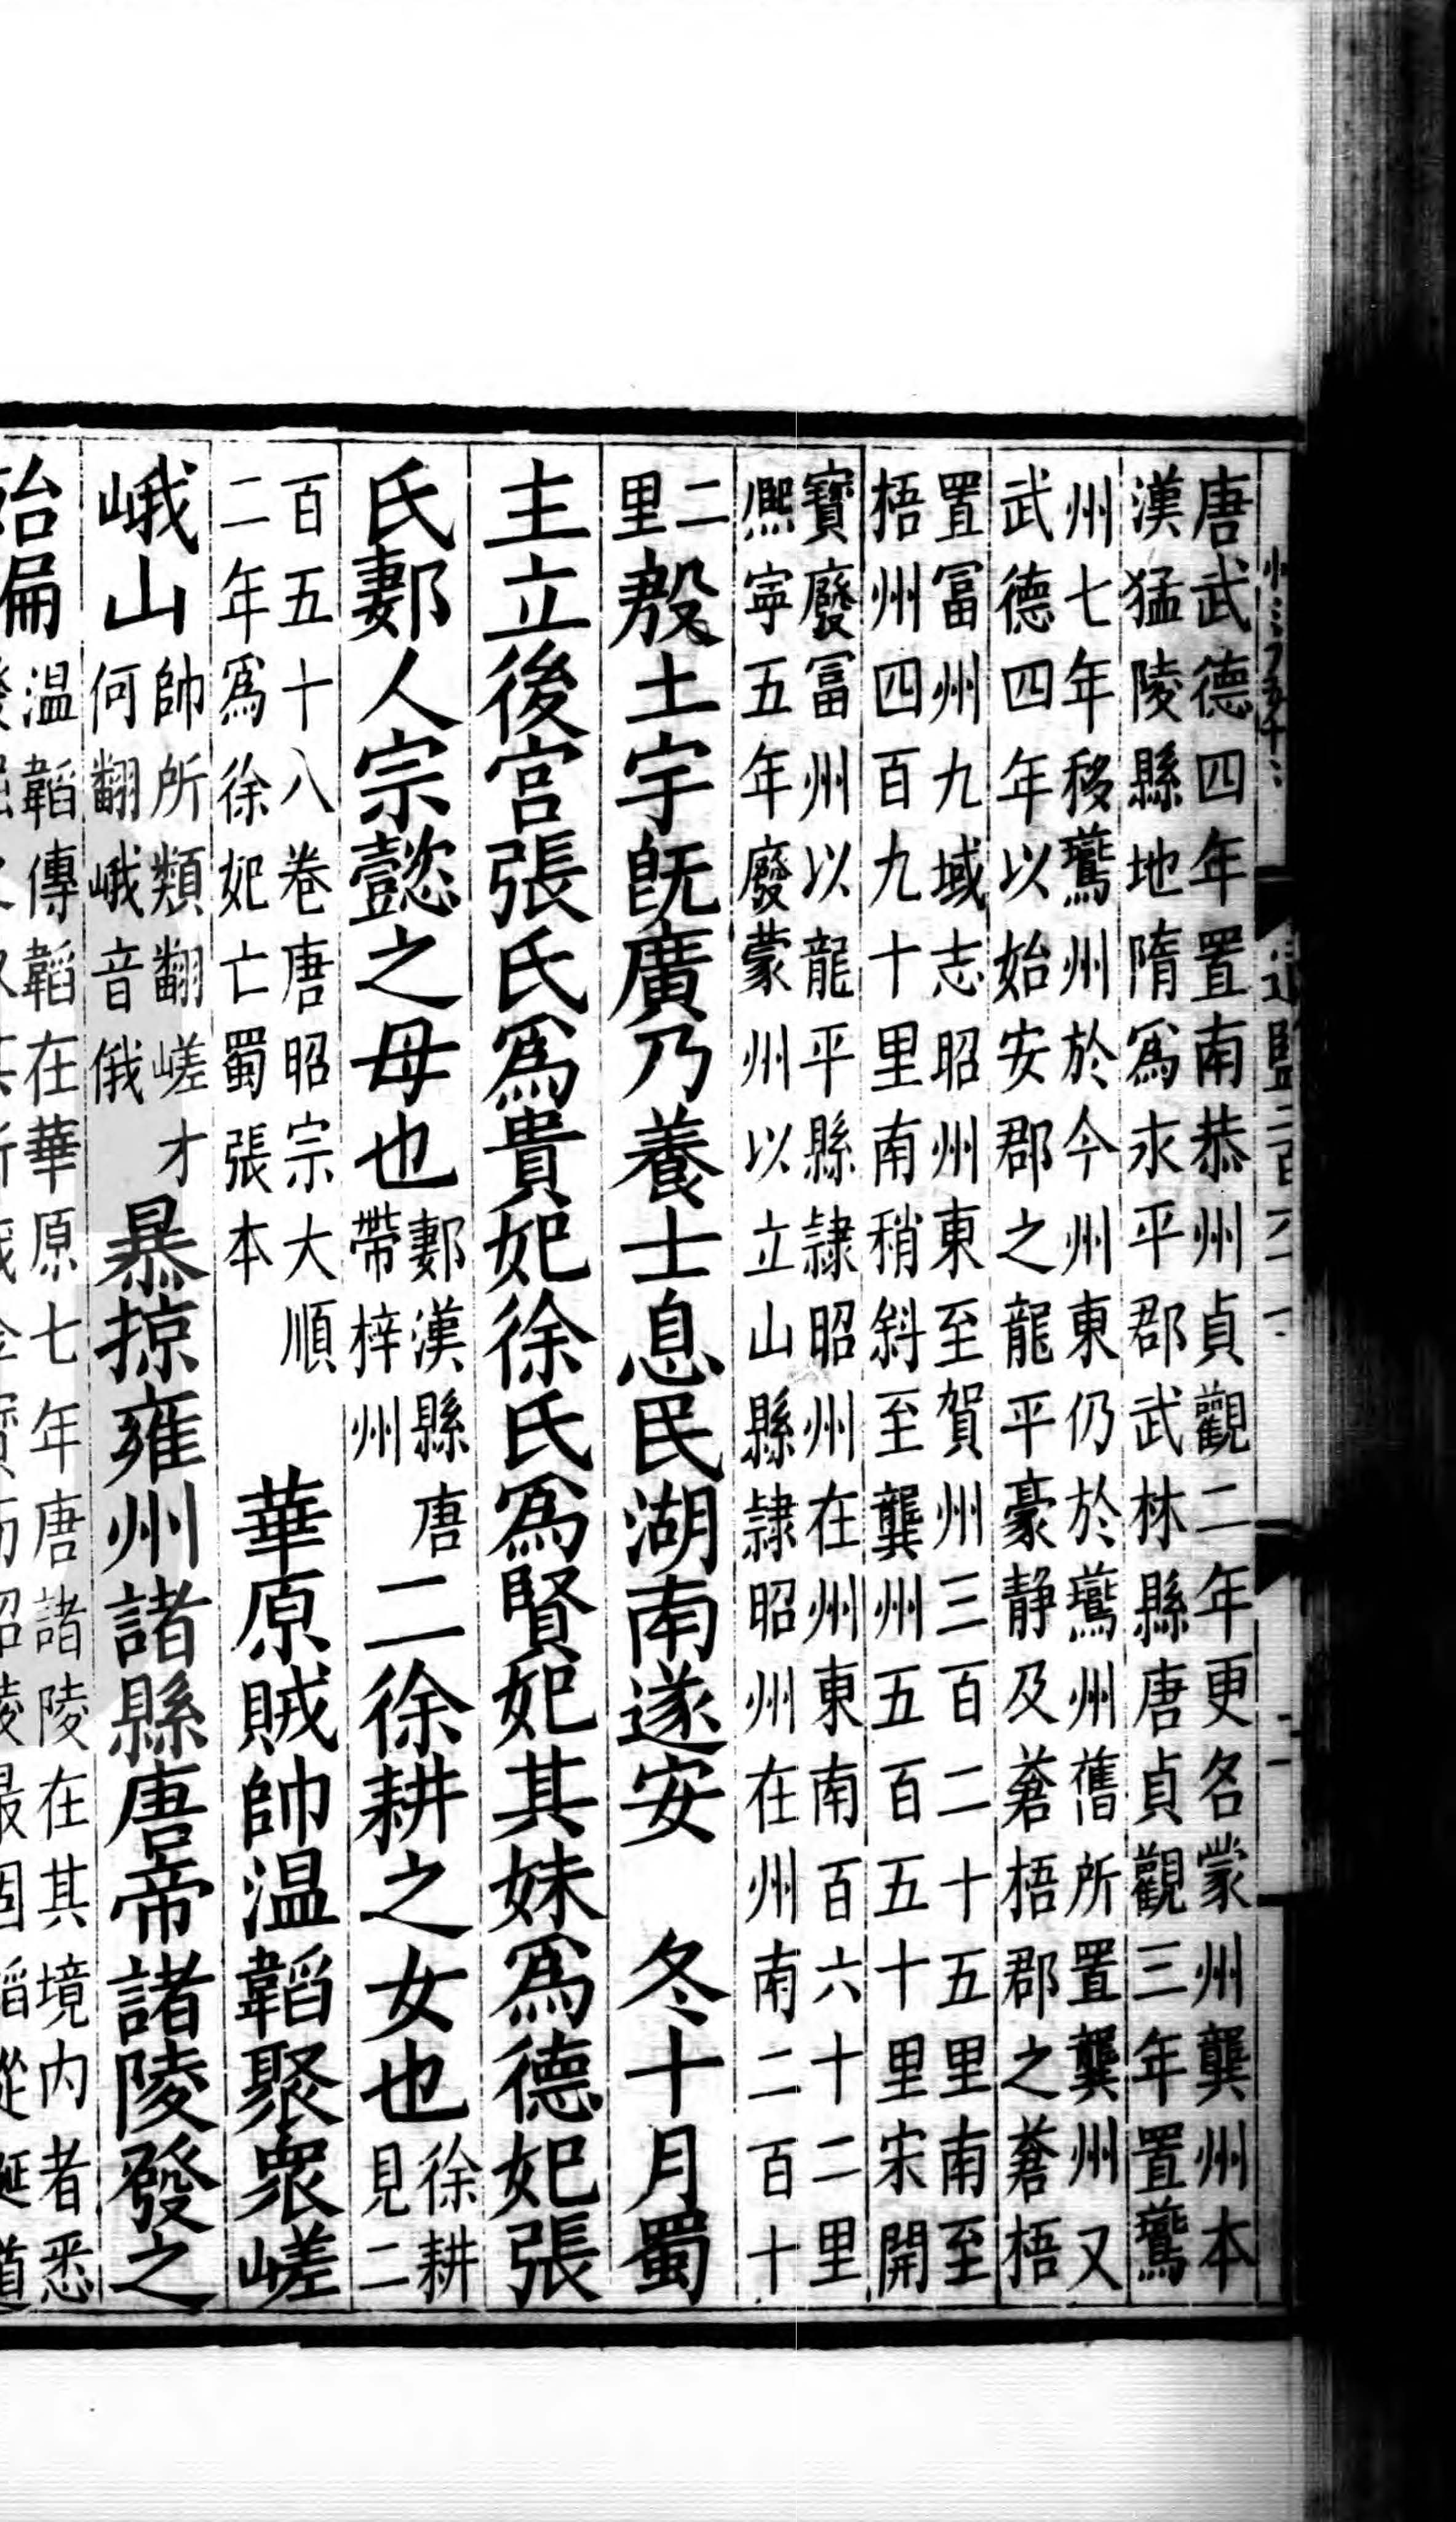 唐武德四年置南恭州貞觀二年更名蒙州龔州本
漢猛陵縣地隋爲永平郡武林縣唐貞觀三年置鷰
州七年移鷰州於今州東仍於鷰州舊所置龔州又
武德四年以始安郡之龍平豪靜及蒼梧郡之蒼梧
置富州九域志昭州東至賀州三百二十五里南至
梧州四百九十里南稍斜至龔州五百五十里宋開
寶廢富州以龍平縣隷昭州在州東南百六十二里
熈寧五年廢蒙州以立山縣隷昭州在州南二百十
二
里
殷土宇旣廣乃養士息民湖南遂安 冬十月蜀
主立後宮張氏爲貴妃徐氏爲賢妃其妹爲德妃張
氏郪人宗懿之母也
郪漢縣唐
帶梓州
二徐耕之女也
徐耕
見二
百五十八卷唐昭宗大順
二年爲徐妃亡蜀張本
華原賊帥温韜聚衆嵯
峨山
帥所類翻嵯才
何翻峨音俄
暴掠雍州諸縣唐帝諸陵發之
殆徧
温韜傳韜在華原七年唐諸陵在其境内者悉